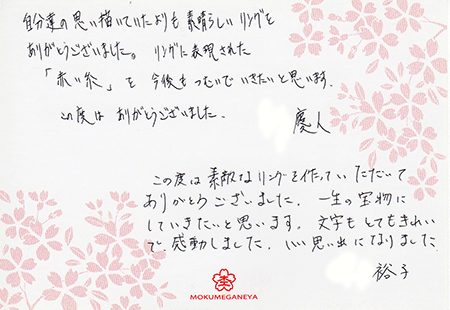 自分達の思い描いていたよりも素晴らしいリングを
ありがとうございました。リングに表現された
「赤い糸」を今後もつむいでいきたいと思います。
この度はありがとうございました。
慶人
この度は素敵なリングを作っていただいて
ありがとうございました。一生の宝物に
していきたいと思います。文字もとてもきれい
で、感動しました。いい思い出になりました
裕子
MOKUMEGANEYA